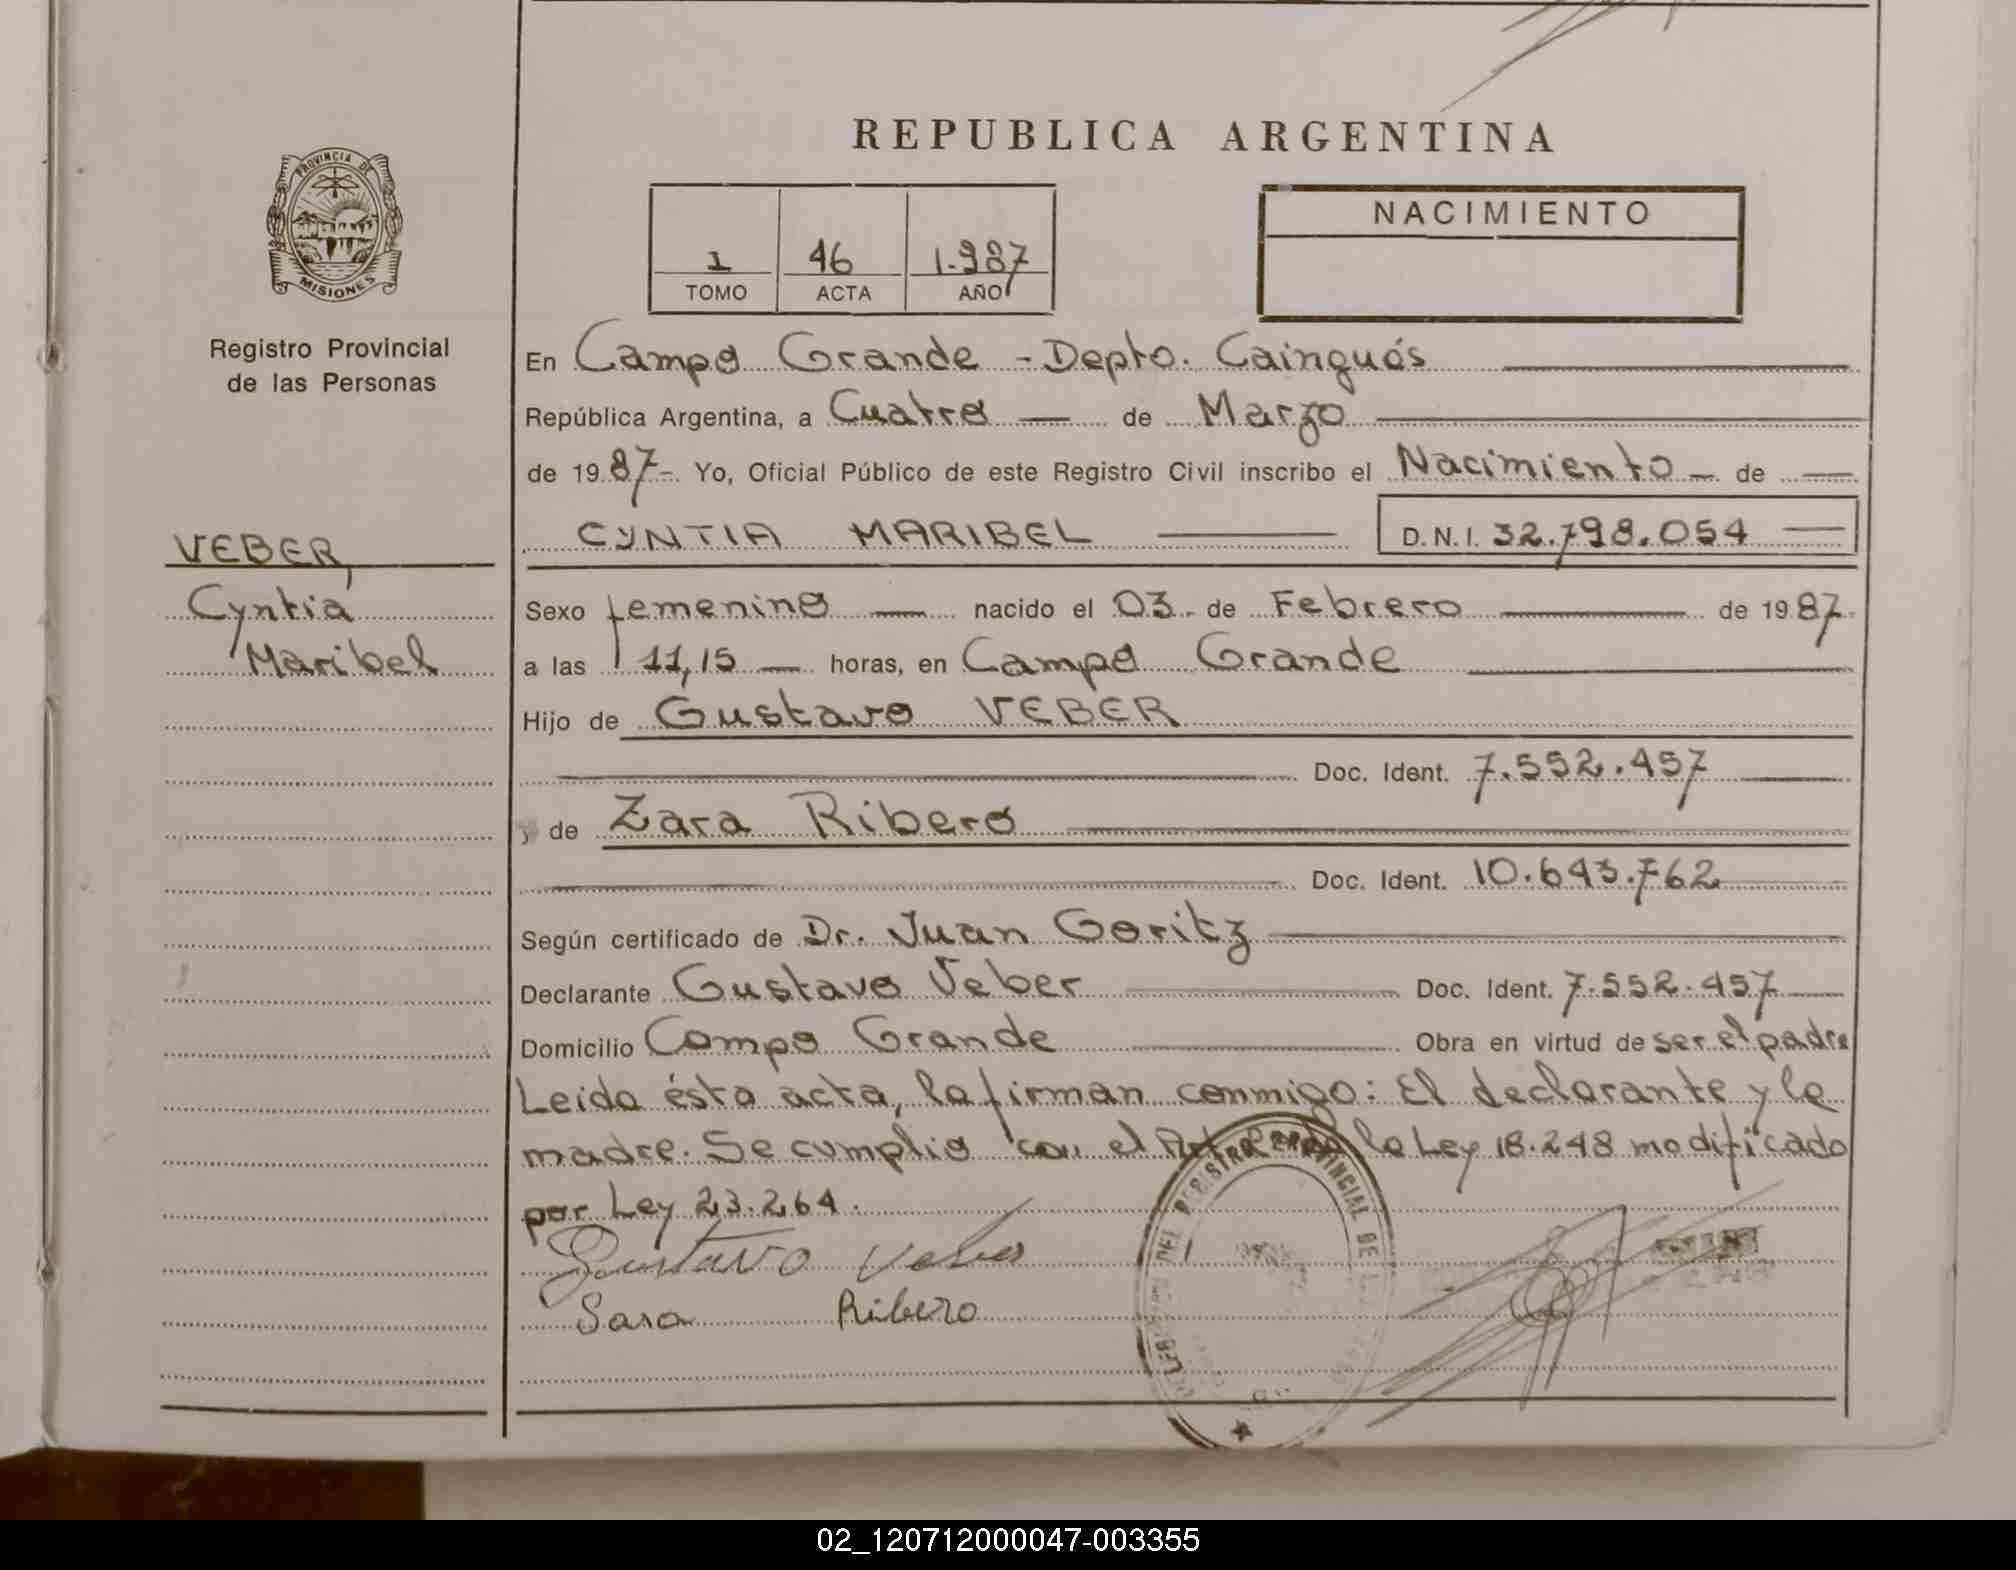 REPUBLICA ARGENTINA
PROVINCIA DE
MISIONES
1
TOMO
46
ACTA
1.987
AÑO
NACIMIENTO
Registro Provincial
de las Personas
VEBER,
Cyntia
Maribel
En Campo Grande - Depto. Cainguás
República Argentina, a Cuatro — de Marzo
de 1987- Yo, Oficial Público de este Registro Civil inscribo el Nacimiento — de —
CYNTIA MARIBEL — D.N.I. 32.798.054 —
Sexo femenino — nacido el 03 de Febrero — de 1987
a las 11,15 — horas, en Campo Grande
Hijo de Gustavo VEBER
Doc. Ident. 7.552.457
y de Zara Ribero
Doc. Ident. 10.643.762
Según certificado de Dr. Juan Goritz
Declarante Gustavo Veber Doc. Ident. 7.552.457
Domicilio Campo Grande Obra en virtud de ser el padre
Leida ésta acta, la firman conmigo: El declarante y la
madre. Se cumplio con el la Ley 18.248 modificado
por Ley 23.264.
Gustavo Veber
Sara Ribero
DEL REGISTRO PROVINCIAL DE
02_120712000047-003355